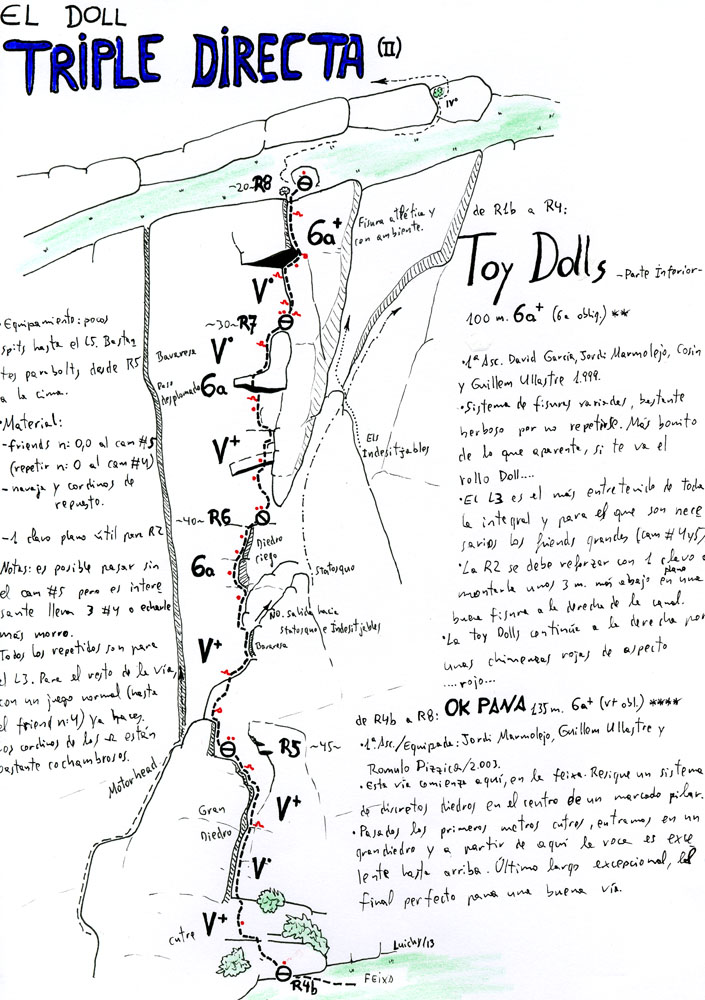 EL DOLL
TRIPLE DIRECTA (II)
IV°
~20~ R8
6a+
Fisura atlética y
con ambiente.
V°
~30~ R7
Bavaresa
V°
Paso
desplomado
6a
V+
Els
Indesitjables
~40~ R6
Diedro
ciego
6a
Statosquo
NO. salida hacia
Statosquo e Indesitjables
Bavaresa
V+
R5 ~45~
Motorhead
Gran
Diedro
V+
V°
V+
cutre
R4b
FEIXA
Luichy/13
• Equipamiento: pocos
spits hasta el L5. Bastan
tes parabolts desde R5
a la cima.
• Material:
- friends n: 0,0 al cam #5
(repetir n: 0 al cam #4)
- navaja y cordinos de
repuesto.
- 1 clavo plano útil para R2
Notas: es posible pasar sin
el cam #5 pero es intere
sante llevar 3 #4 o echarle
más morro.
Todos los repetidos son para
el L3. Para el resto de la vía,
con un juego normal (hasta
el friend n: 4) ya haces.
Los cordinos de las R están
bastante cochambrosos.
de R1b a R4:
Toy Dolls - Parte Inferior -
100 m. 6a+ (6a oblig.) **
• 1ª Asc. David García, Jordi Marmolejo, Cosin
y Guillem Ullastre 1.999.
• Sistema de fisuras variadas, bastante
herboso por no repetirse. Más bonito
de lo que aparenta, si te va el
rollo Doll....
• El L3 es el más entretenido de toda
la integral y para el que son nece
sarios los friends grandes (cam #4 y 5)
• La R2 se debe reforzar con 1 clavo o
plano
montarla unos 3 m. más abajo en una
buena fisura a la derecha de la canal.
• La toy Dolls continúa a la derecha por
unas chimeneas rojas de aspecto
....rojo...
de R4b a R8: OK PANA 135 m. 6a+ (V+ obl.) ****
• 1ª Asc./Equipada: Jordi Marmolejo, Guillem Ullastre y
Romulo Pizzica/2.003.
• Esta vía comienza aquí, en la feixa. Resigue un sistema
de discretos diedros en el centro de un marcado pilar.
• Pasados los primeros metros cutres, entramos en un
gran diedro y a partir de aquí la roca es exce
lente hasta arriba. Último largo excepcional, el
final perfecto para una buena vía.